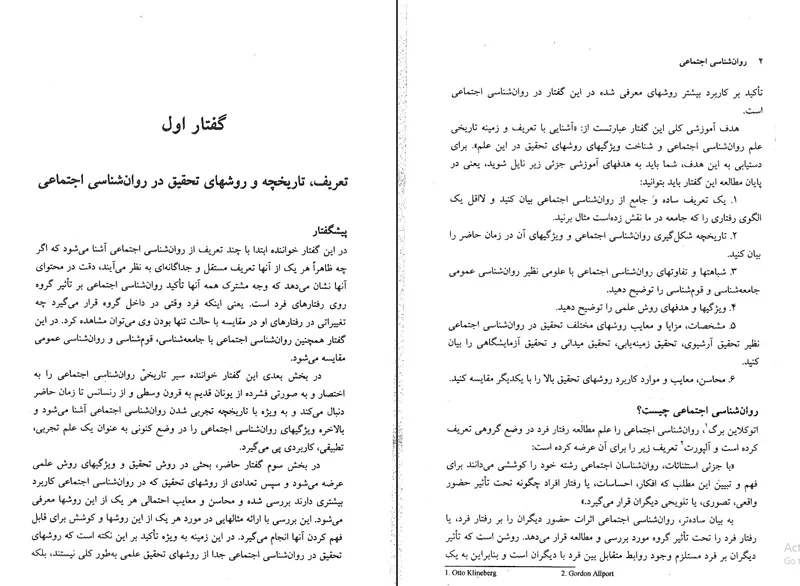 گفتار اول
تعریف، تاریخچه و روشهای تحقیق در روان‌شناسی اجتماعی
پیشگفتار
در این گفتار خواننده ابتدا با چند تعریف از روان‌شناسی اجتماعی آشنا می‌شود که اگر
چه ظاهراً هر یک از آنها تعریف مستقل و جداگانه‌ای به نظر می‌آیند، دقت در محتوای
آنها نشان می‌دهد که وجه مشترک همه آنها تأکید روان‌شناسی اجتماعی بر تأثیر گروه
روی رفتارهای فرد است. یعنی اینکه فرد وقتی در داخل گروه قرار می‌گیرد چه
تغییراتی در رفتارهای او در مقایسه با حالت تنها بودن وی می‌توان مشاهده کرد. در این
گفتار همچنین روان‌شناسی اجتماعی با جامعه‌شناسی، قوم‌شناسی و روان‌شناسی عمومی
مقایسه می‌شود.
در بخش بعدی این گفتار خواننده سیر تاریخی روان‌شناسی اجتماعی را به
اختصار و به صورتی فشرده از یونان قدیم به قرون وسطی و از رنسانس تا زمان حاضر
دنبال می‌کند و به ویژه با تاریخچه تجربی شدن روان‌شناسی اجتماعی آشنا می‌شود و
بالاخره ویژگیهای روان‌شناسی اجتماعی را در وضع کنونی به عنوان یک علم تجربی،
تطبیقی، کاربردی پی می‌گیرد.
در بخش سوم گفتار حاضر، بحثی در روش تحقیق و ویژگیهای روش علمی
عرضه می‌شود و سپس تعدادی از روشهای تحقیق که در روان‌شناسی اجتماعی کاربرد
بیشتری دارند بررسی شده و محاسن و معایب احتمالی هر یک از این روشها معرفی
می‌شود. این بررسی با ارائه مثالهایی در مورد هر یک از این روشها و کوشش برای قابل
فهم کردن آنها انجام می‌گیرد. در این زمینه به ویژه تأکید بر این نکته است که روشهای
تحقیق در روان‌شناسی اجتماعی جدا از روشهای تحقیق علمی به‌طور کلی نیستند، بلکه
۲ روان‌شناسی اجتماعی
تأکید بر کاربرد بیشتر روشهای معرفی شده در این گفتار در روان‌شناسی اجتماعی
است.
هدف آموزشی کلی این گفتار عبارتست از: «آشنایی با تعریف و زمینه تاریخی
علم روان‌شناسی اجتماعی و شناخت ویژگیهای روشهای تحقیق در این علم». برای
دستیابی به این هدف، شما باید به هدفهای آموزشی جزئی زیر نایل شوید، یعنی در
پایان مطالعه این گفتار باید بتوانید:
۱. یک تعریف ساده و جامع از روان‌شناسی اجتماعی بیان کنید و لااقل یک
الگوی رفتاری را که جامعه در ما نقش زده‌است مثال برنید.
۲. تاریخچه شکل‌گیری روان‌شناسی اجتماعی و ویژگیهای آن در زمان حاضر را
بیان کنید.
۳. شباهتها و تفاوتهای روان‌شناسی اجتماعی با علومی نظیر روان‌شناسی عمومی
جامعه‌شناسی و قوم‌شناسی را توضیح دهید.
۴. ویژگیها و هدفهای روش علمی را توضیح دهید.
۵. مشخصات، مزایا و معایب روشهای مختلف تحقیق در روان‌شناسی اجتماعی
نظیر تحقیق آرشیوی، تحقیق زمینه‌یابی، تحقیق میدانی و تحقیق آزمایشگاهی را بیان
کنید.
۶. محاسن، معایب و موارد کاربرد روشهای تحقیق بالا را با یکدیگر مقایسه کنید.
روان‌شناسی اجتماعی چیست؟
اتوکلاین برگ۱، روان‌شناسی اجتماعی را علم مطالعه رفتار فرد در وضع گروهی تعریف
کرده است و آلپورت۲ تعریف زیر را برای آن عرضه کرده است:
«با جزئی استثنائات، روان‌شناسان اجتماعی رشته خود را کوششی می‌دانند برای
فهم و تبیین این مطلب که افکار، احساسات، یا رفتار افراد چگونه تحت تأثیر حضور
واقعی، تصوری، یا تلویحی دیگران قرار می‌گیرد.»
به بیان ساده‌تر، روان‌شناسی اجتماعی اثرات حضور دیگران را بر رفتار فرد، یا
رفتار فرد را تحت تأثیر گروه مورد بررسی و مطالعه قرار می‌دهد. روشن است که تأثیر
دیگران بر فرد مستلزم وجود روابط متقابل بین فرد با دیگران است و بنابراین به یک
1. Otto Klineberg 2. Gordon Allport
Act
Go t